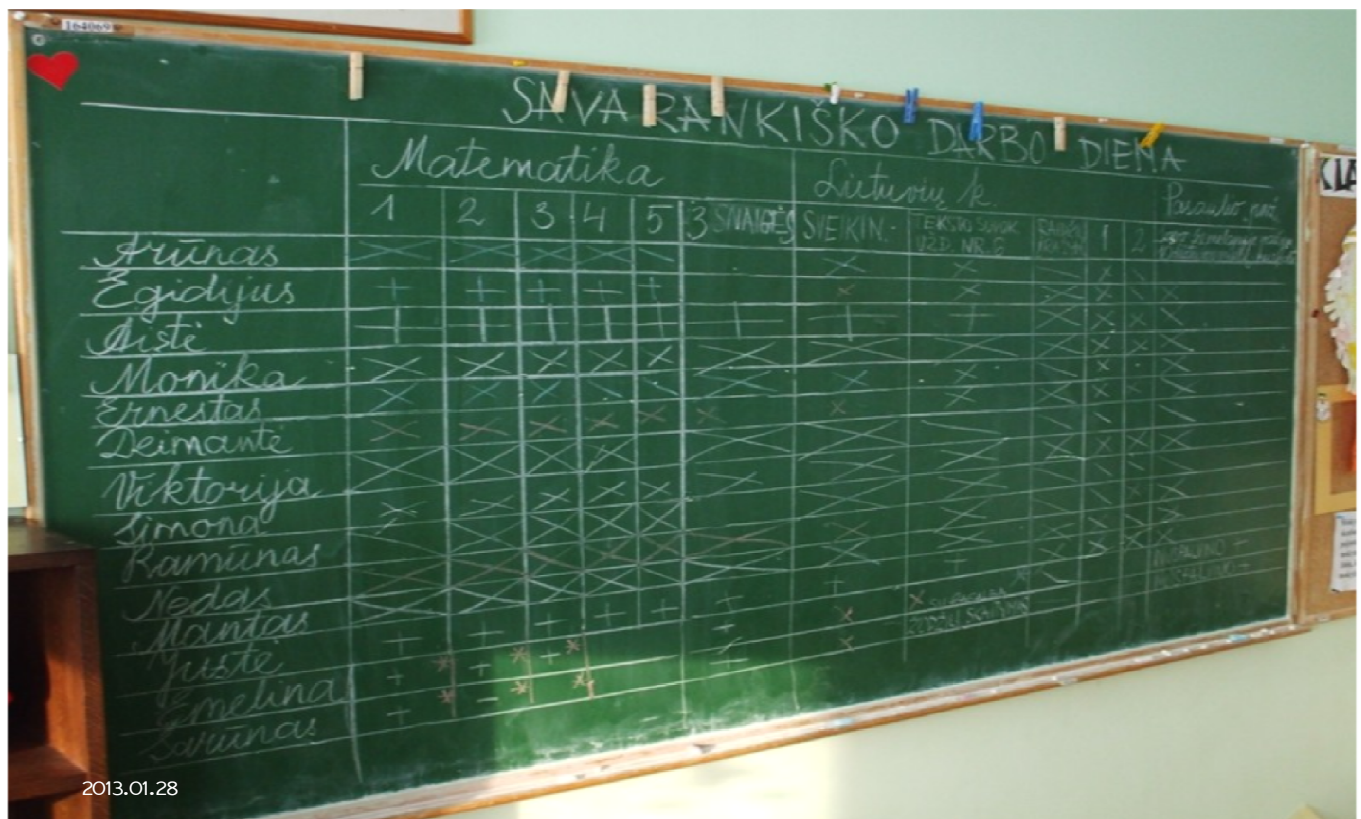 164069
SAVARANKIŠKO DARBO DIENA
Matematika Lietuvių k. Pasaulio paž
1 2 3 4 5 3 SNAIGĖS SVEIKIN. TEKSTO SUVOK 1 2
UŽD. NR. 6
Arūnas
Egidijus
Aistė
Monika
Ernestas
Deimantė
Viktorija
Simona
Ramūnas
Nedas
Mantas
Justė
Emelina
Šarūnas
KLA
2013.01.28